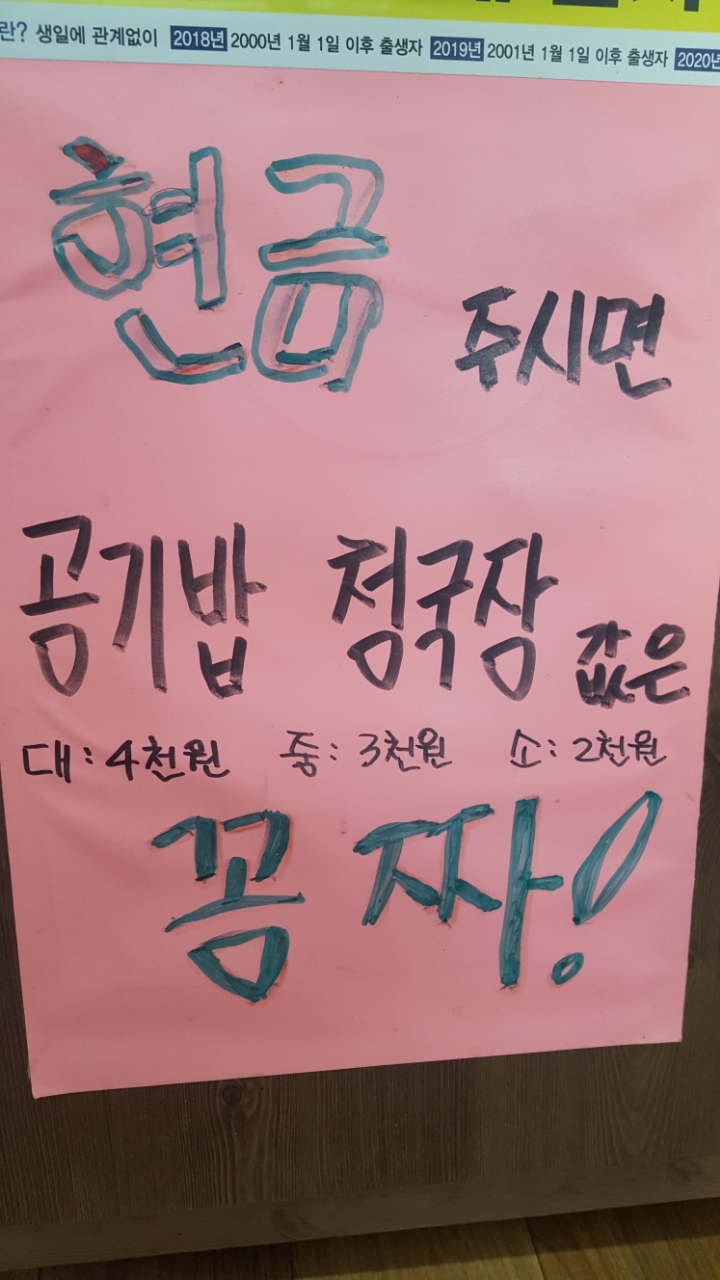 란? 생일에 관계없이 2018년 2000년 1월 1일 이후 출생자 2019년 2001년 1월 1일 이후 출생자 2020년
현금 주시면
공기밥 청국장 값은
대:4천원 중:3천원 소:2천원
꽁짜!